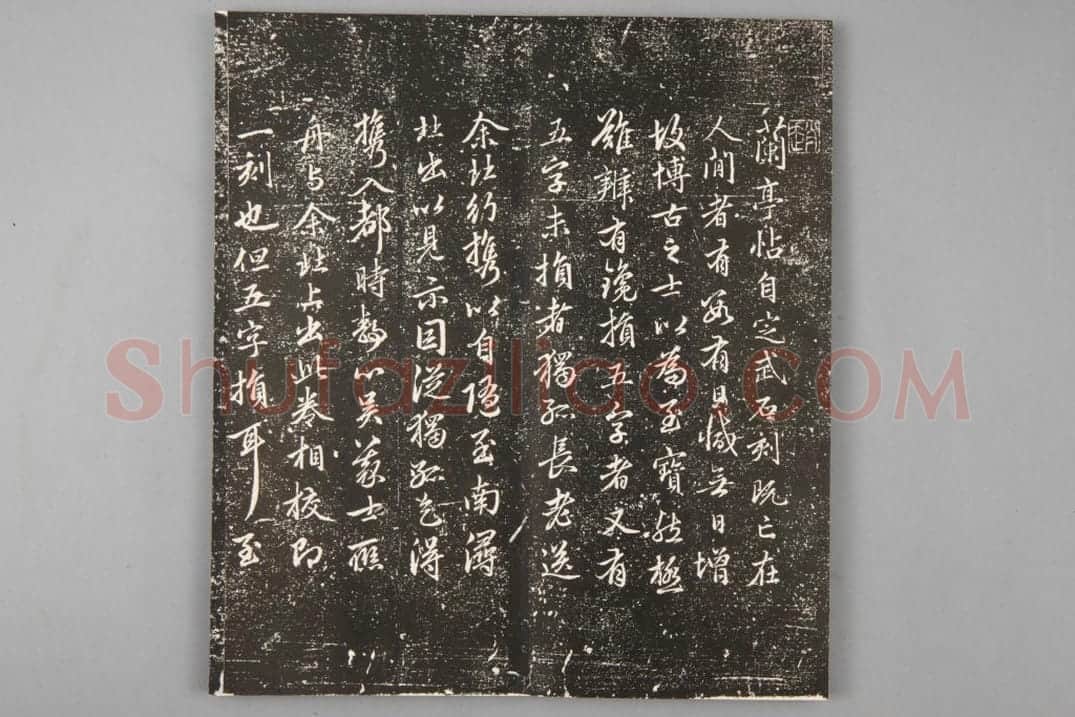 蘭亭帖自定武石刻既亡在
人間者有數有日減無日增
故博古之士以為至寶然極
難辨有鐫損五字者又有
五字未損者獨孤長老送
余北行攜以自隨至南潯
北出以見示因從獨孤乞得
攜入都時與吳森士
舟與余北上出此卷相校即
一刻也但五字損耳至
Shufaziliao.COM